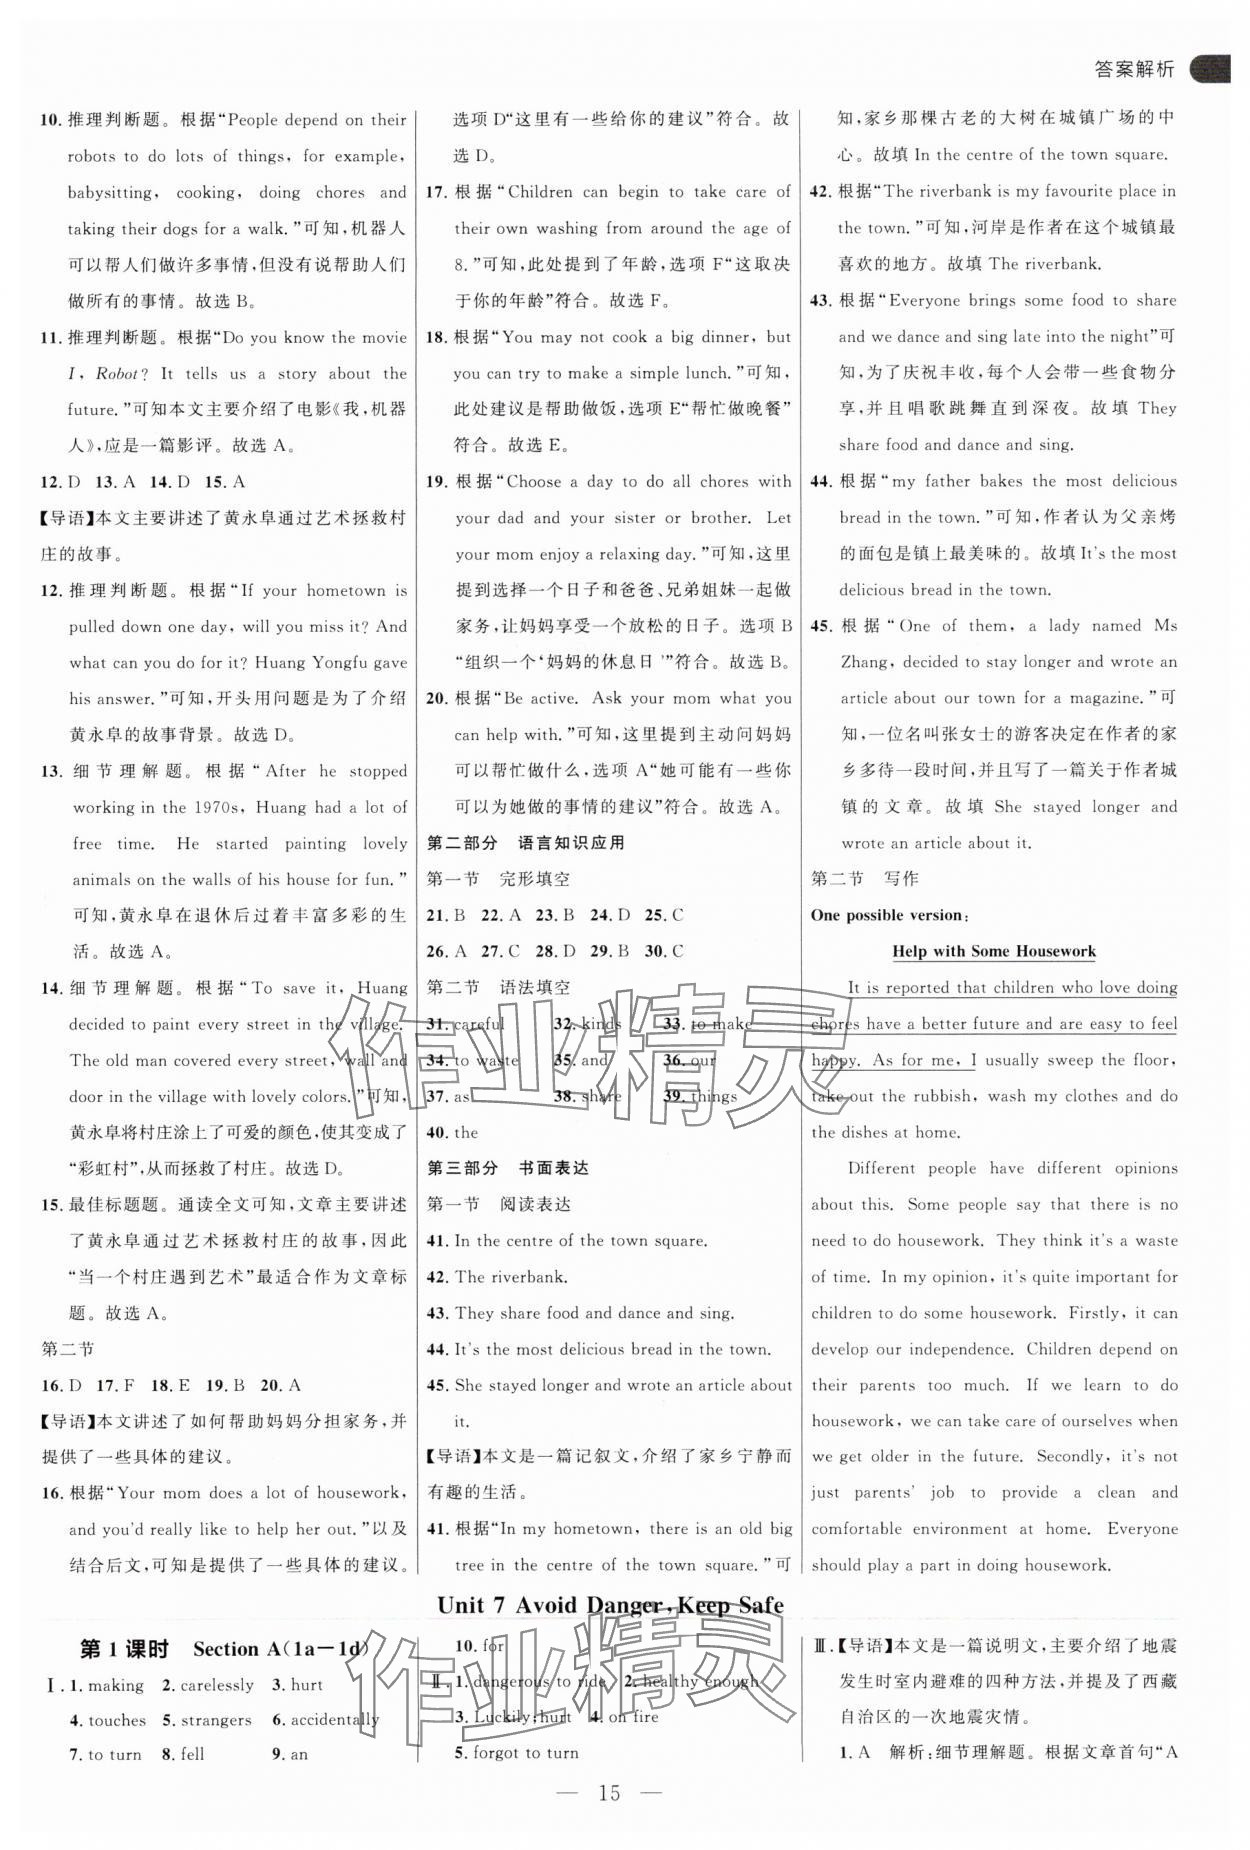 答案解析
10. 推理判断题。根据“People depend on their
robots to do lots of things, for example,
babysitting, cooking, doing chores and
taking their dogs for a walk.”可知,机器人
可以帮人们做许多事情,但没有说帮助人们
做所有的事情。故选 B。
11. 推理判断题。根据“Do you know the movie
I, Robot? It tells us a story about the
future.”可知本文主要介绍了电影《我,机器
人》,应是一篇影评。故选 A。
12. D 13. A 14. D 15. A
【导语】本文主要讲述了黄永阜通过艺术拯救村
庄的故事。
12. 推理判断题。根据“If your hometown is
pulled down one day, will you miss it? And
what can you do for it? Huang Yongfu gave
his answer.”可知,开头用问题是为了介绍
黄永阜的故事背景。故选 D。
13. 细节理解题。根据“After he stopped
working in the 1970s, Huang had a lot of
free time. He started painting lovely
animals on the walls of his house for fun.”
可知,黄永阜在退休后过着丰富多彩的生
活。故选 A。
14. 细节理解题。根据“To save it, Huang
decided to paint every street in the village.
The old man covered every street, wall and
door in the village with lovely colors.”可知,
黄永阜将村庄涂上了可爱的颜色,使其变成了
“彩虹村”,从而拯救了村庄。故选 D。
15. 最佳标题题。通读全文可知,文章主要讲述
了黄永阜通过艺术拯救村庄的故事,因此
“当一个村庄遇到艺术”最适合作为文章标
题。故选 A。
第二节
16. D 17. F 18. E 19. B 20. A
【导语】本文讲述了如何帮助妈妈分担家务,并
提供了一些具体的建议。
16. 根据“Your mom does a lot of housework,
and you'd really like to help her out.”以及
结合后文,可知是提供了一些具体的建议。
选项 D“这里有一些给你的建议”符合。故
选 D。
17. 根据“Children can begin to take care of
their own washing from around the age of
8.”可知,此处提到了年龄,选项 F“这取决
于你的年龄”符合。故选 F。
18. 根据“You may not cook a big dinner, but
you can try to make a simple lunch.”可知,
此处建议是帮助做饭,选项 E“帮忙做晚餐”
符合。故选 E。
19. 根据“Choose a day to do all chores with
your dad and your sister or brother. Let
your mom enjoy a relaxing day.”可知,这里
提到选择一个日子和爸爸、兄弟姐妹一起做
家务,让妈妈享受一个放松的日子。选项 B
“组织一个‘妈妈的休息日’”符合。故选 B。
20. 根据“Be active. Ask your mom what you
can help with.”可知,这里提到主动问妈妈
可以帮忙做什么,选项 A“她可能有一些你
可以为她做的事情的建议”符合。故选 A。
第二部分 语言知识应用
第一节 完形填空
21. B 22. A 23. B 24. D 25. C
26. A 27. C 28. D 29. B 30. C
第二节 语法填空
31. careful 32. kinds 33. to make
34. to waste 35. and 36. our
37. as 38. share 39. things
40. the
第三部分 书面表达
第一节 阅读表达
41. In the centre of the town square.
42. The riverbank.
43. They share food and dance and sing.
44. It's the most delicious bread in the town.
45. She stayed longer and wrote an article about
it.
【导语】本文是一篇记叙文,介绍了家乡宁静而
有趣的生活。
41. 根据“In my hometown, there is an old big
tree in the centre of the town square.”可
知,家乡那棵古老的大树在城镇广场的中
心。故填 In the centre of the town square.
42. 根据“The riverbank is my favourite place in
the town.”可知,河岸是作者在这个城镇最
喜欢的地方。故填 The riverbank.
43. 根据“Everyone brings some food to share
and we dance and sing late into the night”可
知,为了庆祝丰收,每个人会带一些食物分
享,并且唱歌跳舞直到深夜。故填 They
share food and dance and sing.
44. 根据“my father bakes the most delicious
bread in the town.”可知,作者认为父亲烤
的面包是镇上最美味的。故填 It's the most
delicious bread in the town.
45. 根据“One of them, a lady named Ms
Zhang, decided to stay longer and wrote an
article about our town for a magazine.”可
知,一位名叫张女士的游客决定在作者的家
乡多待一段时间,并且写了一篇关于作者城
镇的文章。故填 She stayed longer and
wrote an article about it.
第二节 写作
One possible version:
Help with Some Housework
It is reported that children who love doing
chores have a better future and are easy to feel
happy. As for me, I usually sweep the floor,
take out the rubbish, wash my clothes and do
the dishes at home.
Different people have different opinions
about this. Some people say that there is no
need to do housework. They think it's a waste
of time. In my opinion, it's quite important for
children to do some housework. Firstly, it can
develop our independence. Children depend on
their parents too much. If we learn to do
housework, we can take care of ourselves when
we get older in the future. Secondly, it's not
just parents' job to provide a clean and
comfortable environment at home. Everyone
should play a part in doing housework.
Unit 7 Avoid Danger, Keep Safe
第 1 课时 Section A(1a—1d)
Ⅰ. 1. making 2. carelessly 3. hurt
4. touches 5. strangers 6. accidentally
7. to turn 8. fell 9. an
10. for
Ⅱ. 1. dangerous to ride 2. healthy enough
3. Luckily; hurt 4. on fire
5. forgot to turn
Ⅲ.【导语】本文是一篇说明文,主要介绍了地震
发生时室内避难的四种方法,并提及了西藏
自治区的一次地震灾情。
1. A 解析:细节理解题。根据文章首句“A
— 15 —
作业精灵
作业精灵